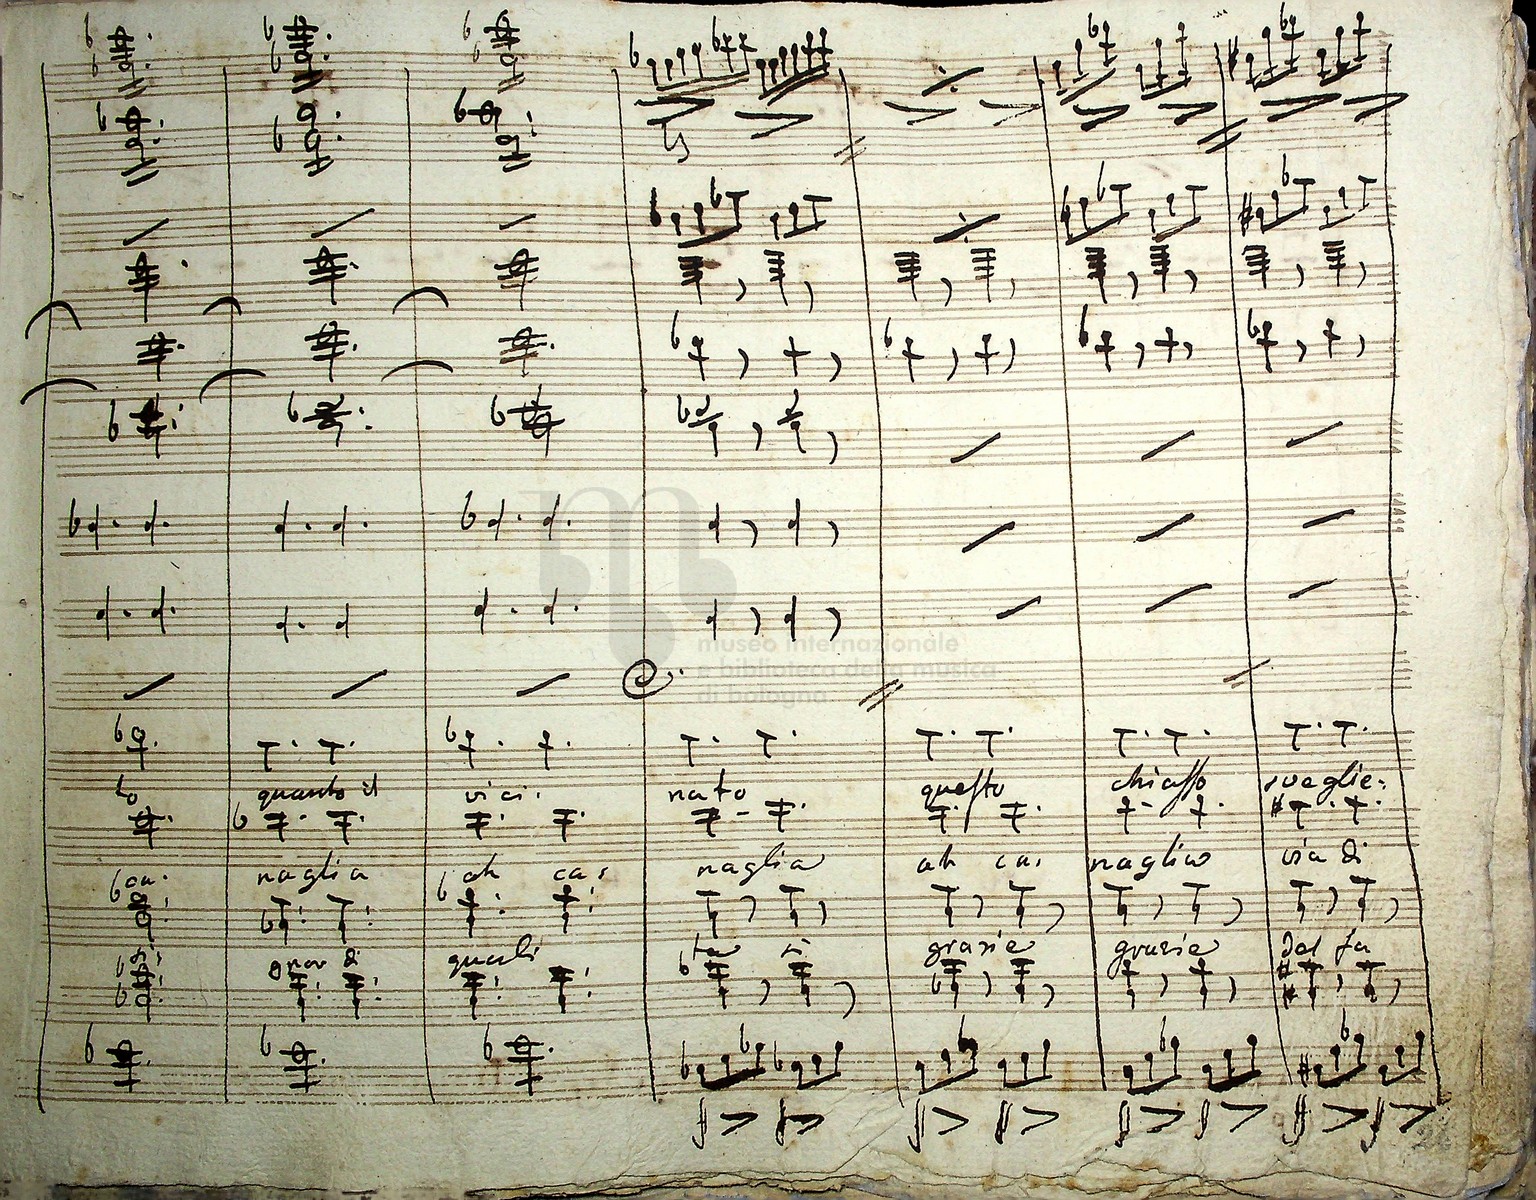 museo internazionale
e biblioteca della musica
di bologna
to quanto il vici: nato questo chiasso sveglie:
ca: naglia ah ca: naglia ah ca: naglia via di
si: gnor di quali ta si grazie grazie del fa